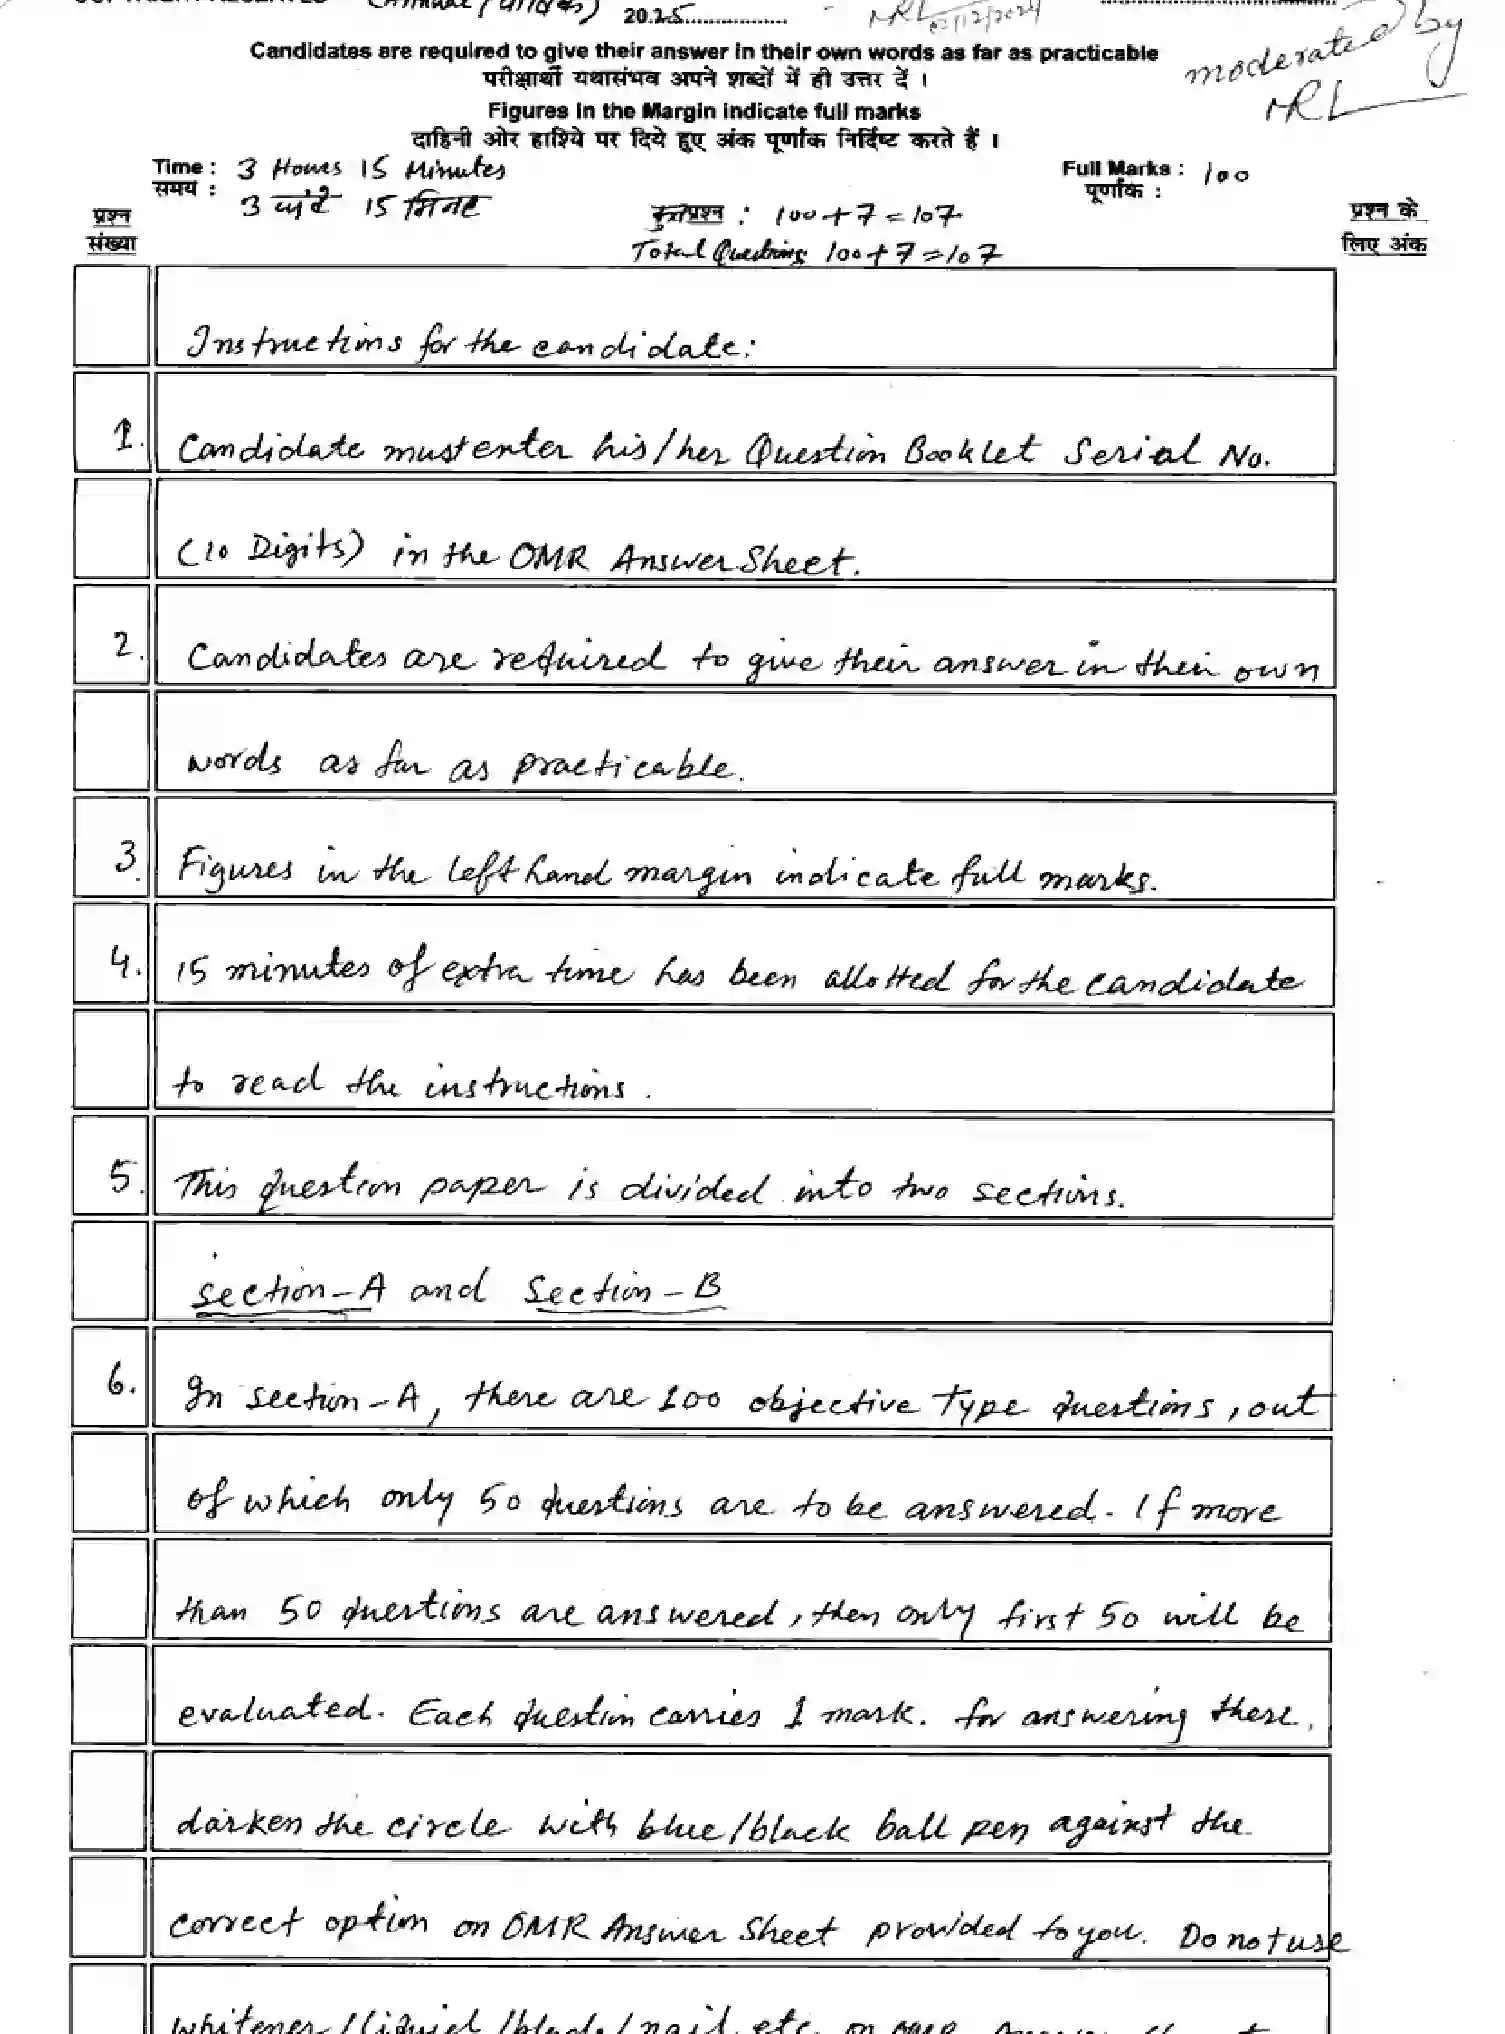 20.25
Candidates are required to give their answer in their own words as far as practicable
परीक्षार्थी यथासंभव अपने शब्दों में ही उत्तर दें ।
moderated by
NRL
Figures in the Margin indicate full marks
दाहिनी ओर हाशिये पर दिये हुए अंक पूर्णांक निर्दिष्ट करते हैं ।
Time : 3 Hours 15 Minutes Full Marks : 100
समय : 3 घंटे 15 मिनट पूर्णांक :
प्रश्न संख्या
कुल प्रश्न : 100+7=107
Total Questions 100+7=107
प्रश्न के लिए अंक
Instructions for the candidate:
1. Candidate must enter his/her Question Booklet Serial No.
(10 Digits) in the OMR Answer Sheet.
2. Candidates are required to give their answer in their own
words as far as practicable.
3. Figures in the left hand margin indicate full marks.
4. 15 minutes of extra time has been allotted for the candidate
to read the instructions.
5. This question paper is divided into two sections.
section-A and Section-B
6. In section-A, there are 100 objective Type questions, out
of which only 50 questions are to be answered. If more
than 50 questions are answered, then only first 50 will be
evaluated. Each question carries 1 mark. for answering these,
darken the circle with blue/black ball pen against the
correct option on OMR Answer Sheet provided to you. Do not use
whitener/liquid/blade/nail etc. on OMR Answer Sheet